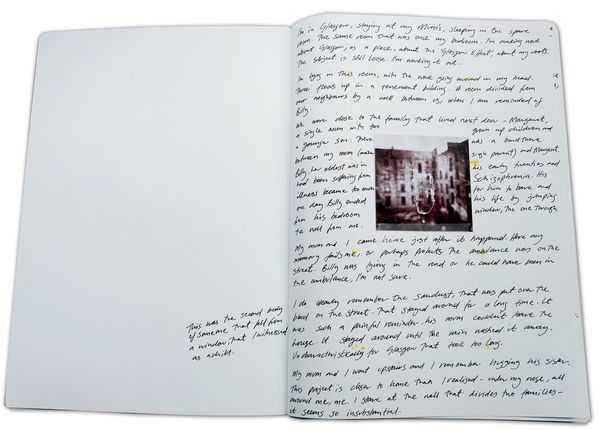 This was the second body
of someone that fell from
a window that I witnessed
as a child.
I'm in Glasgow, staying at my Mum's, sleeping in the spare
room. The same room that was once my bedroom. I'm making work
about Glasgow, as a place, about the 'Glasgow Effect', about my roots.
The subject is still loose. I'm working it out...
I'm lying in this room, with the work going around in my head.
Three floors up in a tenement building. A room divided from
our neighbours by a wall between us, when I am reminded of
Billy.
We were close to the family that lived next door - Margaret,
a single mum with two grown up children and
a younger son. There was a bond there
between my mum (another single parent) and Margaret.
Billy, her oldest was in his early twenties and
had been suffering from Schizophrenia. His
illness became too much for him to bare and
one day Billy ended his life by jumping
from his bedroom window, the one through
the wall from me.
My mum and I came home just after it happened. Here my
memory fails me, or perhaps protects. The ambulance was on the
street. Billy was lying in the road or he could have been in
the ambulance, I'm not sure.
I do clearly remember the sawdust, that was put over the
blood on the street. That stayed around for a long time. It
was such a painful reminder, his mum couldn't leave the
house. It stayed around until the rain washed it away.
Uncharacteristically for Glasgow that took too long.
My mum and I went upstairs and I remember hugging his sister.
This project is closer to home than I realised - under my nose, all
around me, me. I stare at the wall that divides two families -
it seems so insubstantial.